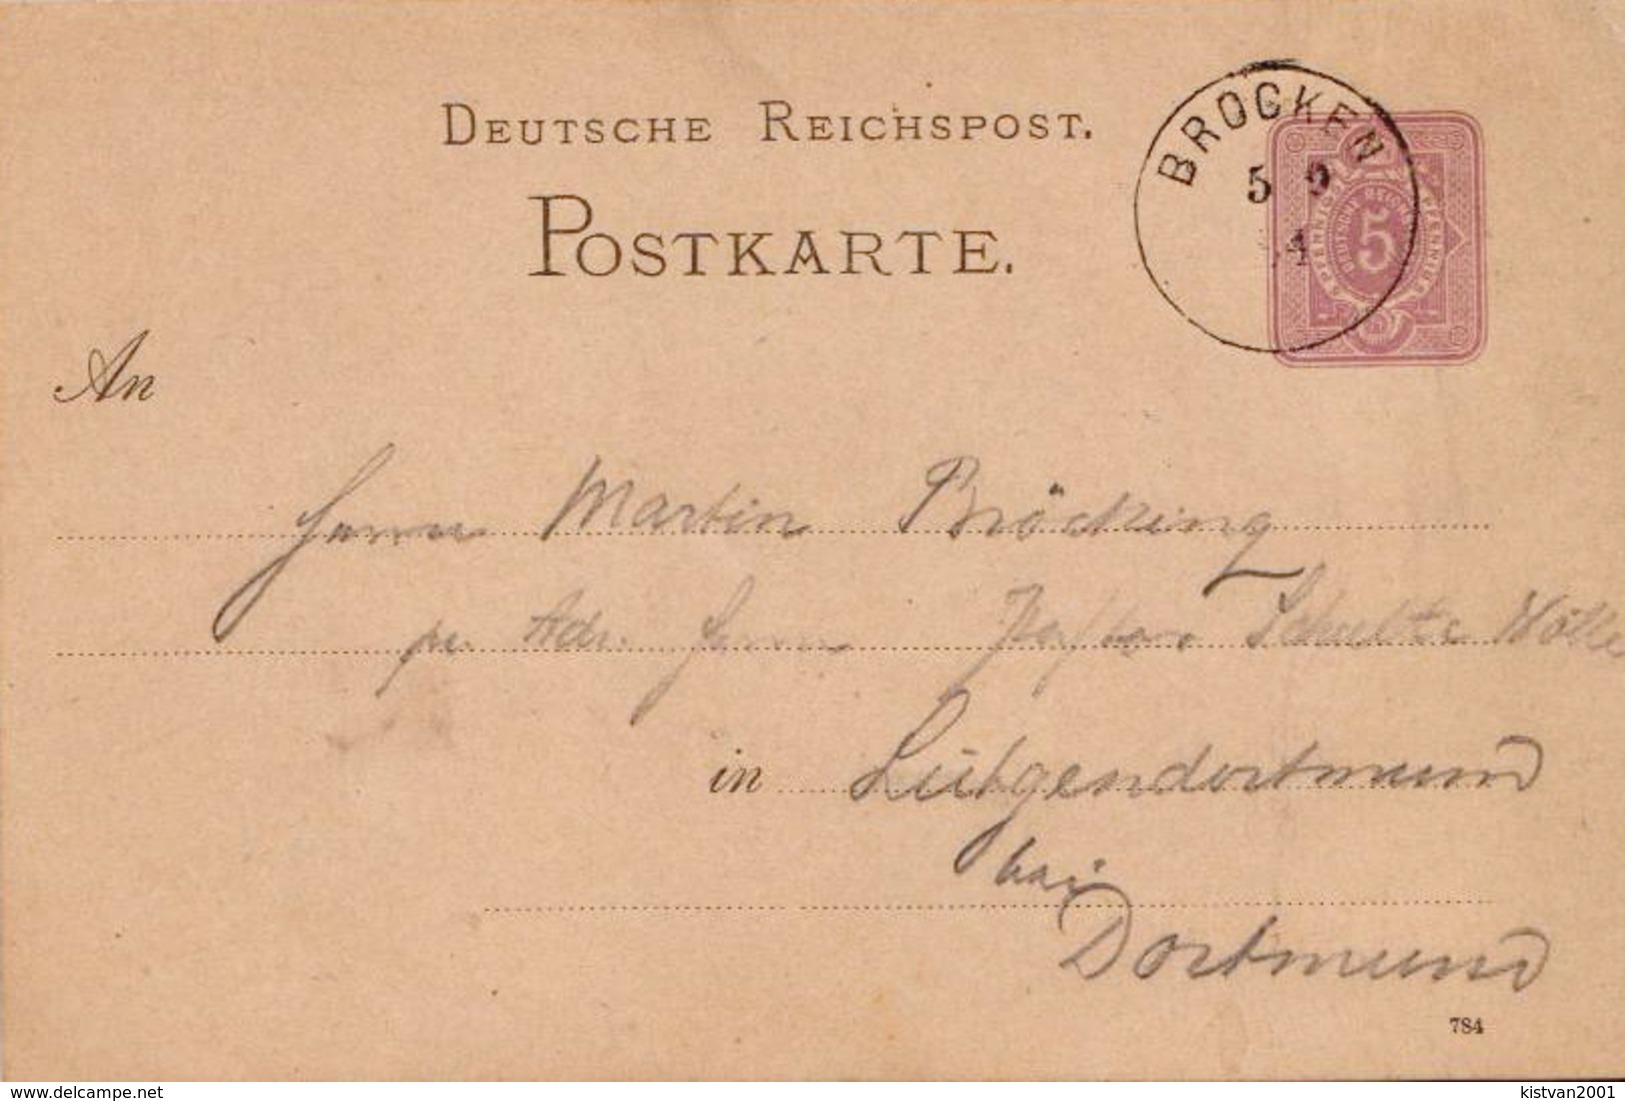 DEUTSCHE REICHSPOST.
POSTKARTE.
BROCKEN
5 9
4
5
An
Herrn Martin Bröcking
pr. Adr. Herrn Pastor Schultze Nölle
in Lütgendortmund
bei
Dortmund
784
www.delcampe.net
kistvan2001